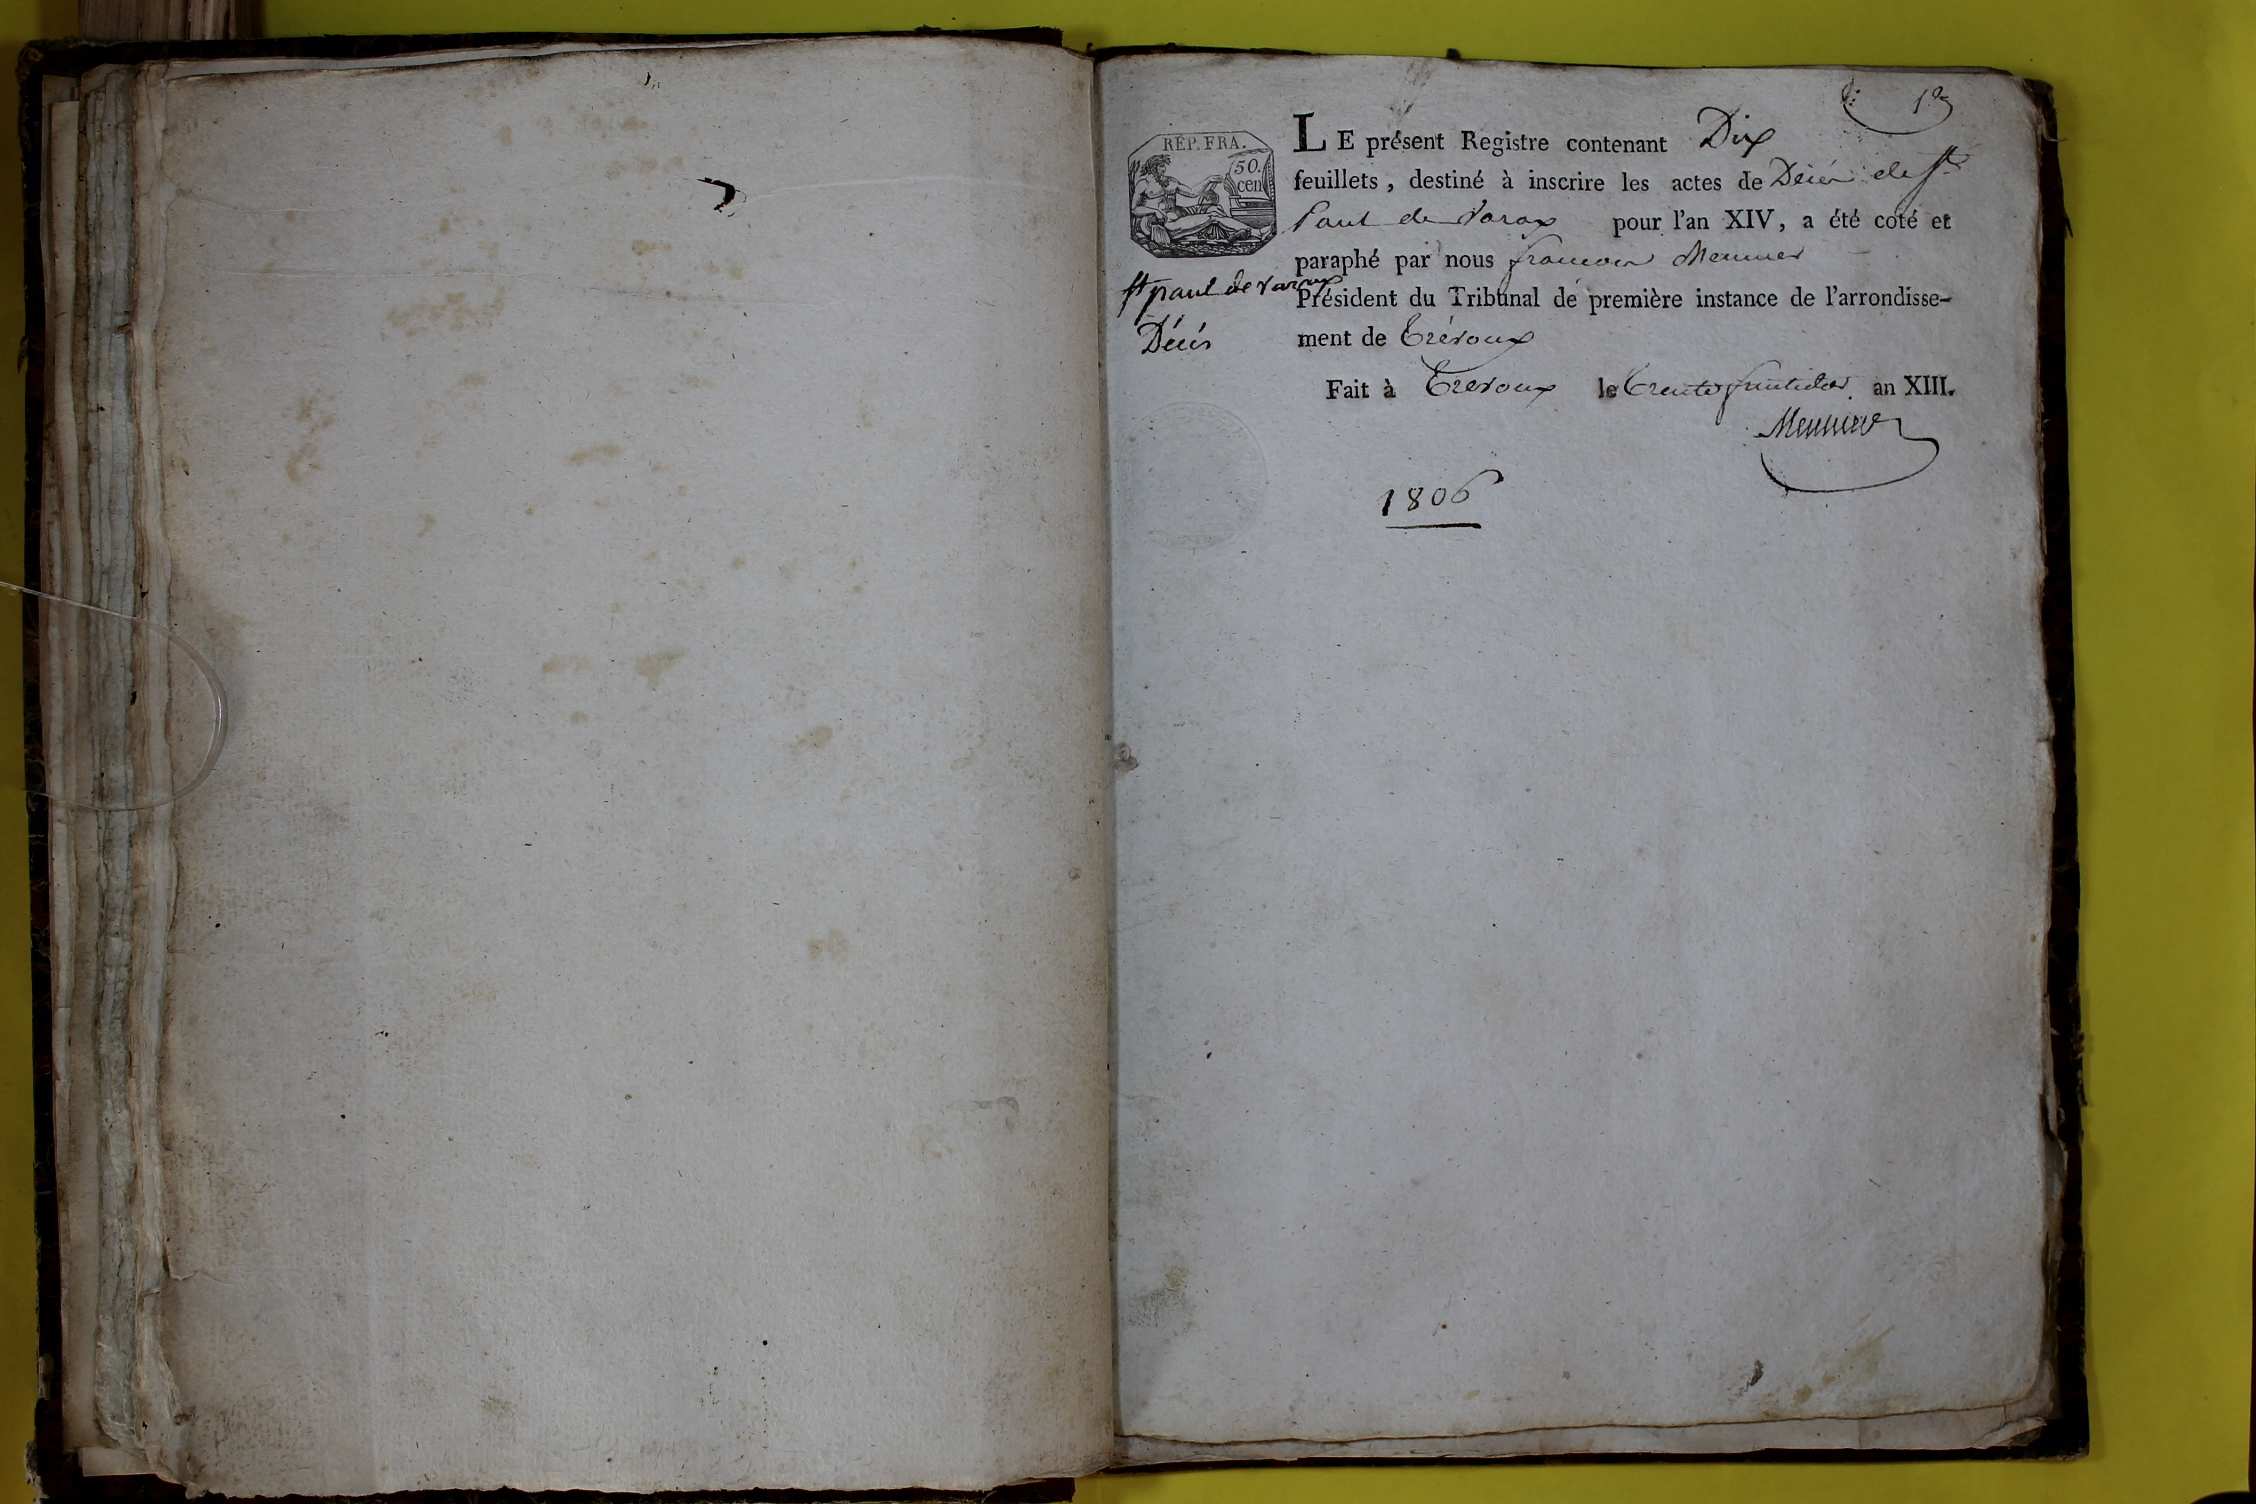 1er
REP. FRA.
50.
cen
LE présent Registre contenant Dix
feuillets, destiné à inscrire les actes de Décès de St
Paul de Varax pour l'an XIV, a été coté et
paraphé par nous françois Meunier
Président du Tribunal de première instance de l'arrondisse-
ment de Trévoux
Fait à Trevoux le Trente fructidor an XIII.
Meunier
St paul de varax
Décès
1806